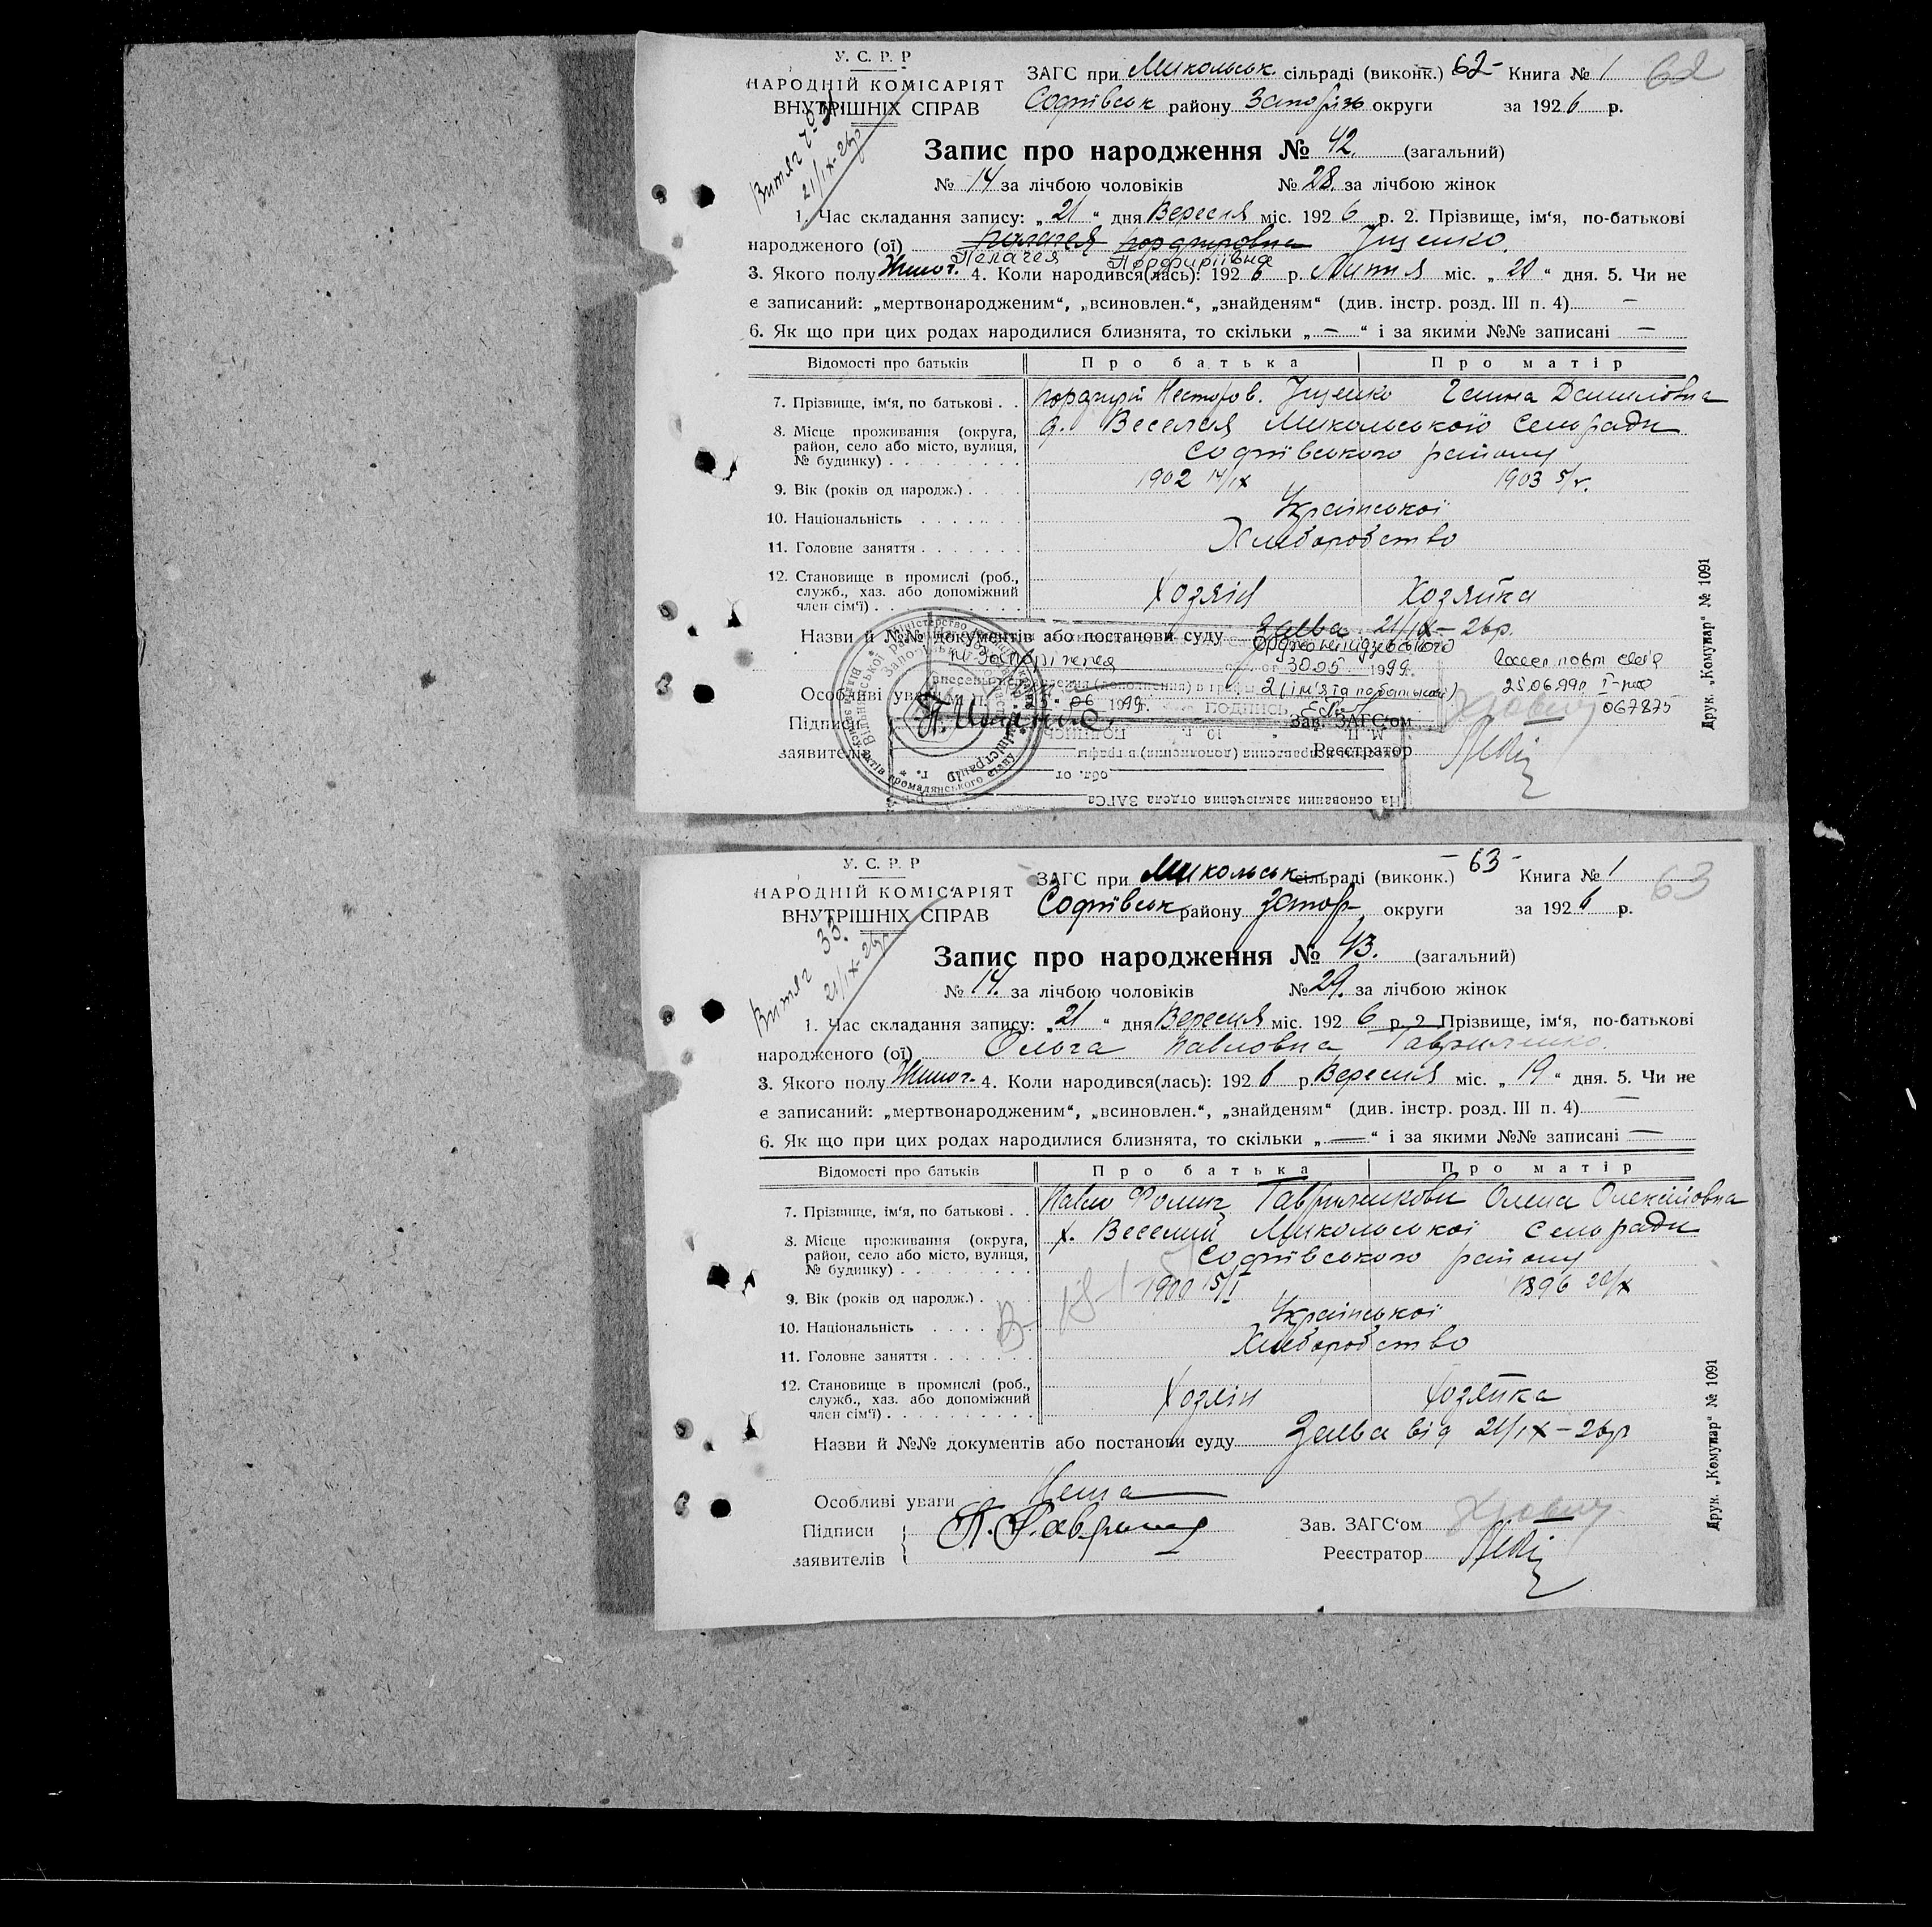 У. С. Р. Р
НАРОДНІЙ КОМІСАРІЯТ
ВНУТРІШНІХ СПРАВ
ЗАГС при Микольськ сільраді (виконк.) 62- Книга № 1 62
Софіївськ району Запоріж округи за 1926 р.
Витяг
21/IX-26р
Запис про народження № 42. (загальний)
№ 14 за лічбою чоловіків № 28. за лічбою жінок
1. Час складання запису: „21“ дня Вересня міс. 1926 р. 2. Прізвище, ім‘я, по-батькові
народженого (ої) Іщенко.
Пелагея Порфиріївна
3. Якого полу Жиноч. 4. Коли народився(лась): 1926 р. Липня міс. „20“ дня. 5. Чи не
є записаний: „мертвонародженим“, „всиновлен.“, „знайденям“ (див. інстр. розд. III п. 4) —
6. Як що при цих родах народилися близнята, то скільки „—“ і за якими №№ записані —
Відомості про батьків Про батька Про матір
7. Прізвище, ім‘я, по батькові . . Порфирій Несторов. Іщенко Ганна Даниловна
8. Місце проживання (округа, район, село або місто, вулиця, № будинку) Веселая Микольської Сельради
Софіївського району
9. Вік (років од народж.) 1902 14/IX 1903 5/V.
10. Національність Української
11. Головне заняття Хліборобство
12. Становище в промислі (роб., служб., хаз. або допоміжний член сім‘ї) Хозяїн Хозяйка
Назви й №№ документів або постанови суду Заява 21/IX-26р.
Орджонікідзевського
м. Запоріжжя от 30.05 1999.
2 (ім'я та по батькові)
25.06.99р. I-
067875
Особливі уваги
Підписи
заявителів
Зав. ЗАГС‘ом
Реєстратор
На основании заключения отдела ЗАГСа
обл. от
Друк. „Комунар“ № 1091
У. С. Р. Р
НАРОДНІЙ КОМІСАРІЯТ
ВНУТРІШНІХ СПРАВ
ЗАГС при Микольськ сільраді (виконк.) -63- Книга № 1 63
Софіївськ району Запор. округи за 1926 р.
Витяг 33.
21/IX-26р
Запис про народження № 43. (загальний)
№ 14. за лічбою чоловіків № 29. за лічбою жінок
1. Час складання запису: „21“ дня Вересня міс. 1926 р. 2. Прізвище, ім‘я, по-батькові
народженого (ої) Ольга Павловна Гавриленко.
3. Якого полу Жиноч. 4. Коли народився(лась): 1926 р Вересня міс. „19“ дня. 5. Чи не
є записаний: „мертвонародженим“, „всиновлен.“, „знайденям“ (див. інстр. розд. III п. 4) —
6. Як що при цих родах народилися близнята, то скільки „—“ і за якими №№ записані —
Відомості про батьків Про батька Про матір
7. Прізвище, ім‘я, по батькові . . Павло Фомич Гавриленкови Олена Олексійовна
8. Місце проживання (округа, район, село або місто, вулиця, № будинку) х. Веселий Микольської Сельради
Софіївського району
9. Вік (років од народж.) 1900 15/I 1896 20/X
10. Національність Української
11. Головне заняття Хліборобство
12. Становище в промислі (роб., служб., хаз. або допоміжний член сім‘ї) Хозяїн Хозяйка
Назви й №№ документів або постанови суду Заява від 21/IX-26р
Особливі уваги Нема
Підписи
заявителів
Зав. ЗАГС‘ом
Реєстратор
Друк. „Комунар“ № 1091